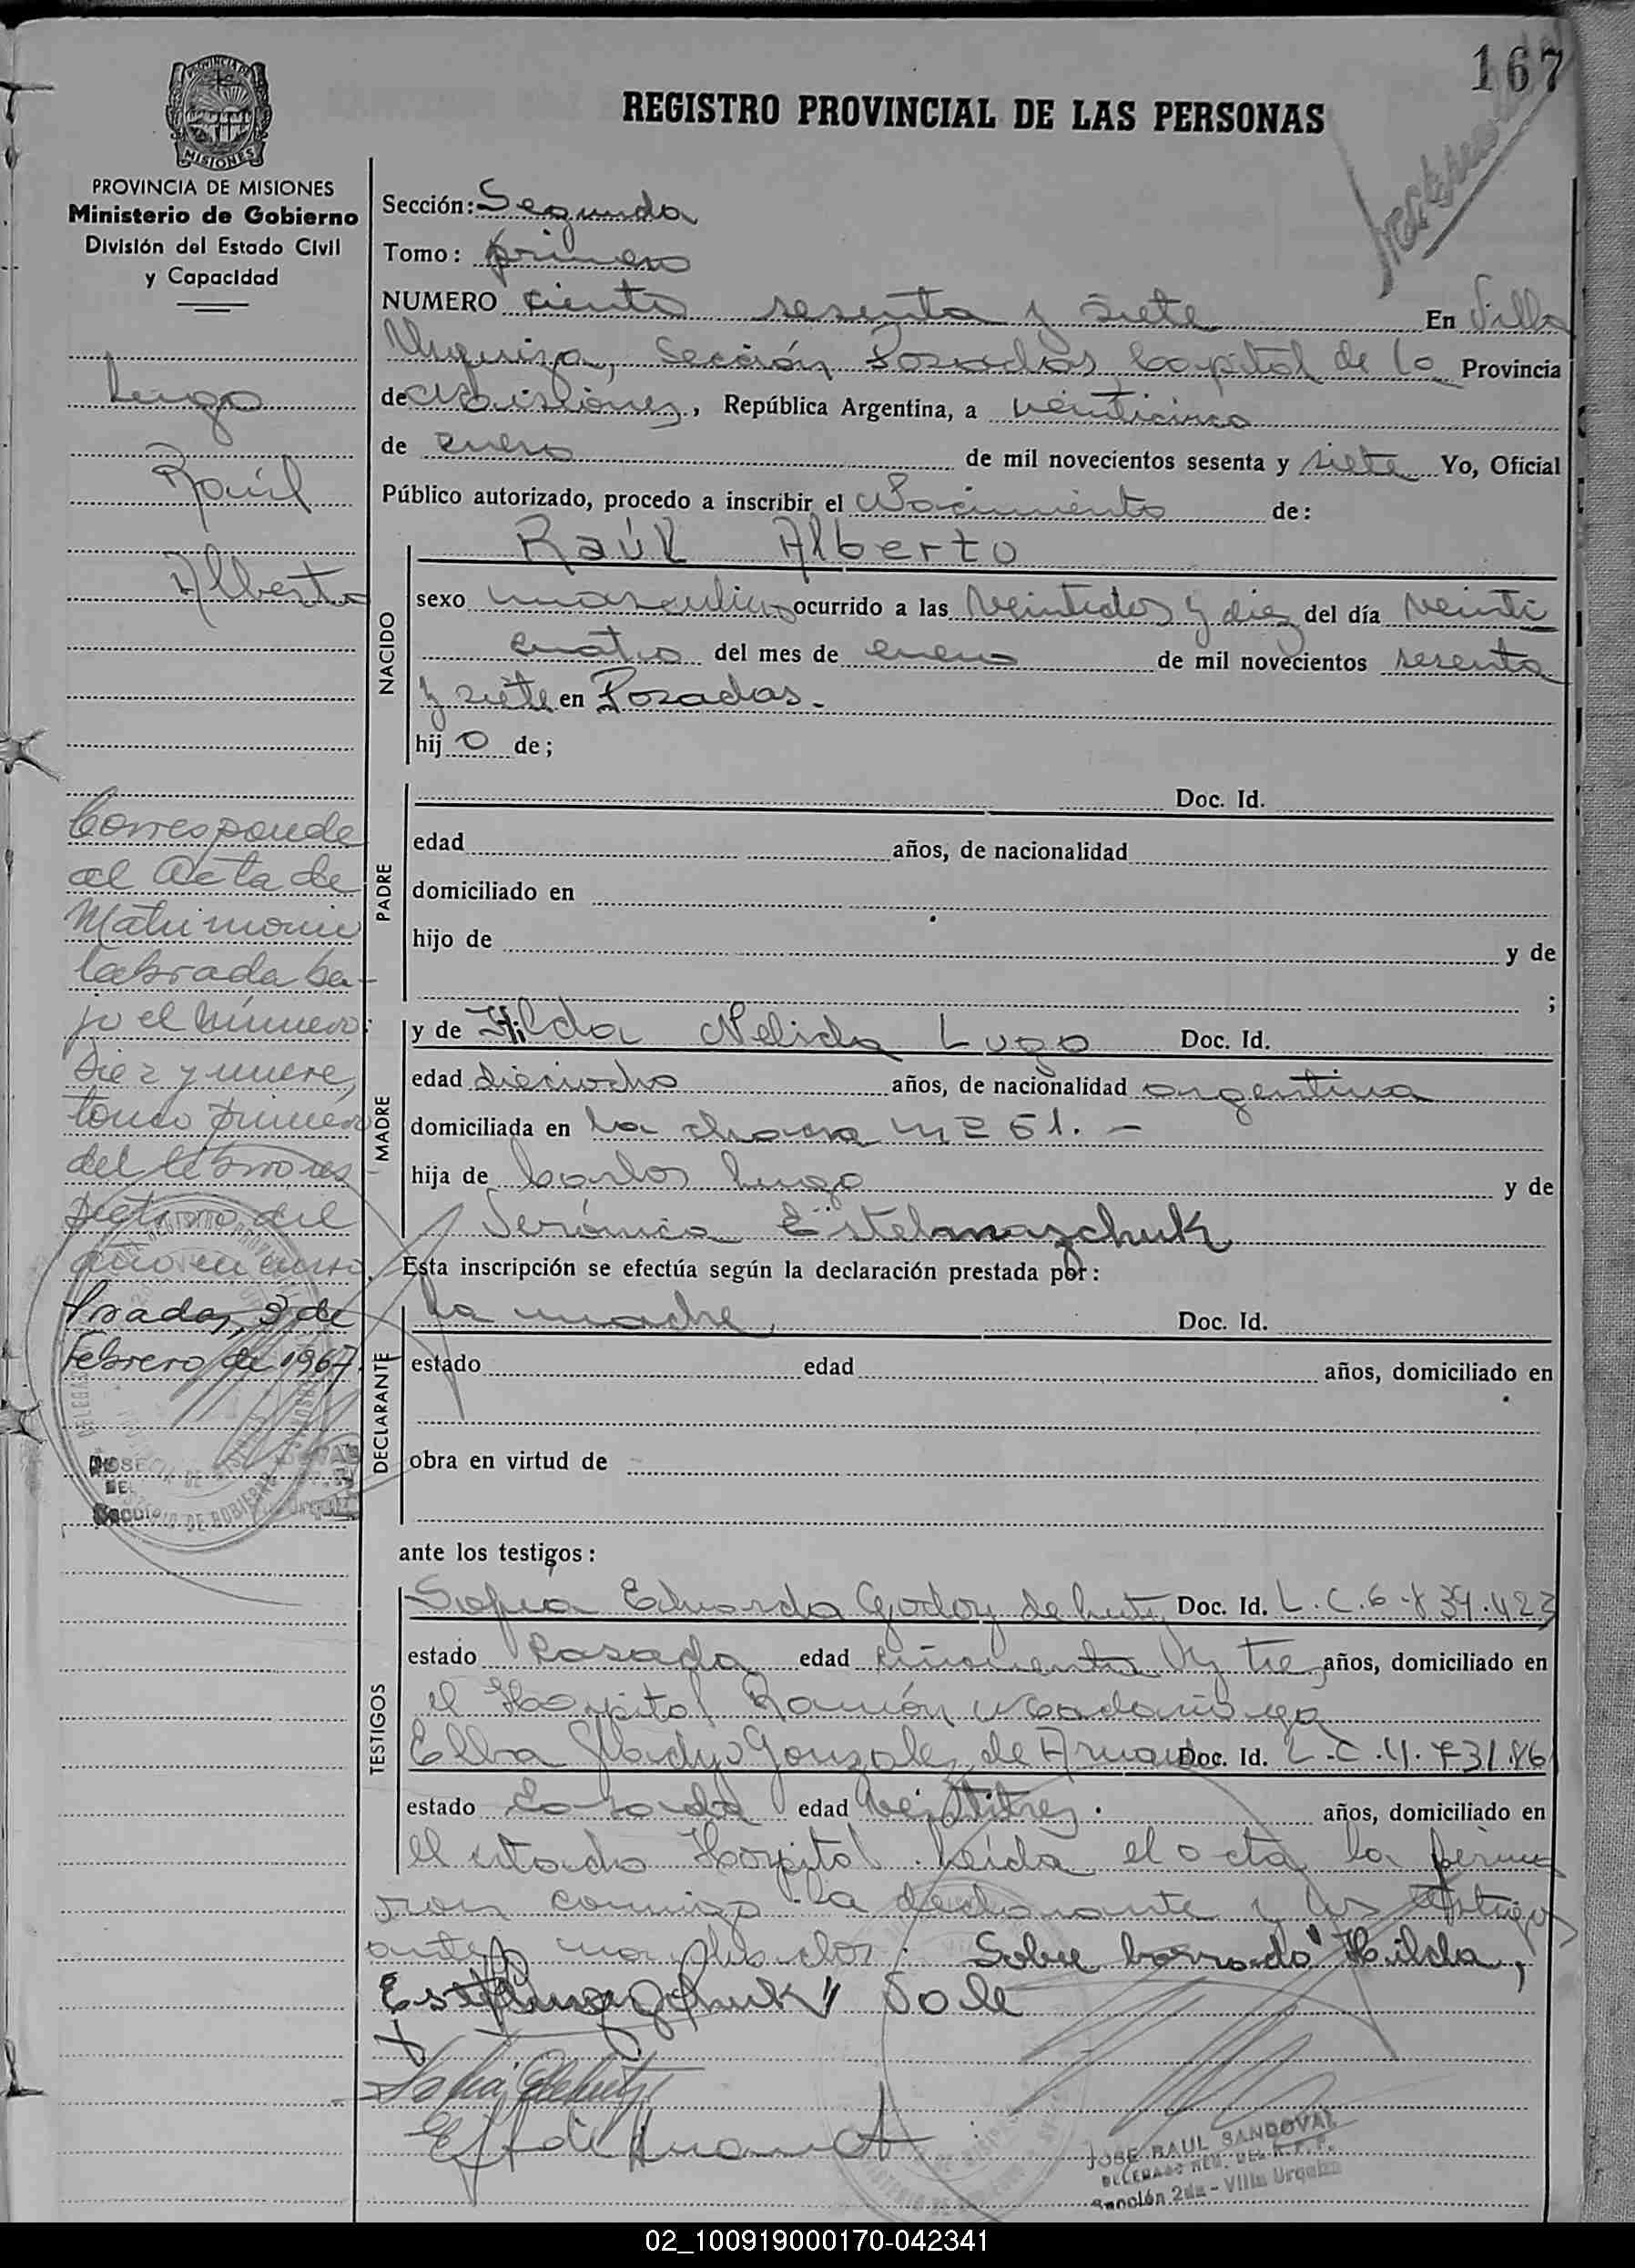 167
REGISTRO PROVINCIAL DE LAS PERSONAS
PROVINCIA DE MISIONES
Ministerio de Gobierno
División del Estado Civil
y Capacidad
Lugo
Raúl
Alberto
Corresponde
al Acta de
Matrimonio
labrada ba-
jo el número
Diez y nueve,
tomo primero
del libro res
pectivo del
año en curso.
Posadas, 3 de
Febrero de 1967.
Sección: Segunda
Tomo: primero
NUMERO ciento sesenta y siete En Villa
Urquiza, Sección Posadas, Capital de la Provincia
de Misiones, República Argentina, a veinticinco
de enero de mil novecientos sesenta y siete Yo, Oficial
Público autorizado, procedo a inscribir el Nacimiento de:
NACIDO
Raúl Alberto
sexo masculino ocurrido a las veintidos y diez del día veinti
cuatro del mes de enero de mil novecientos sesenta
y siete en Posadas.
hij o de;
PADRE
Doc. Id.
edad años, de nacionalidad
domiciliado en
hijo de y de
;
MADRE
y de Hilda Nelida Lugo Doc. Id.
edad dieciocho años, de nacionalidad argentina
domiciliada en la chacra nº 61. -
hija de Carlos Lugo y de
Verónica Estelmazchuk
Esta inscripción se efectúa según la declaración prestada por:
DECLARANTE
la madre, Doc. Id.
estado edad años, domiciliado en
obra en virtud de
ante los testigos:
TESTIGOS
Sofia Eduarda Godoy de Doc. Id. L.C. 6.839.423
estado Casada edad cincuenta y tres años, domiciliado en
el Hospital Ramón Madariaga
Elba Gladys Gonzalez de Doc. Id. L.C. 4.73186
estado Casada edad veintitres. años, domiciliado en
el citado Hospital. Leída el acta la firma
ron conmigo la declarante y los testigos
antes nombrados. Sobre borrado "Hilda,
Estelmazchuk" Vale
JOSE RAUL SANDOVAL
DELEGADO
Sección 2da - Villa Urquiza
02_100919000170-042341